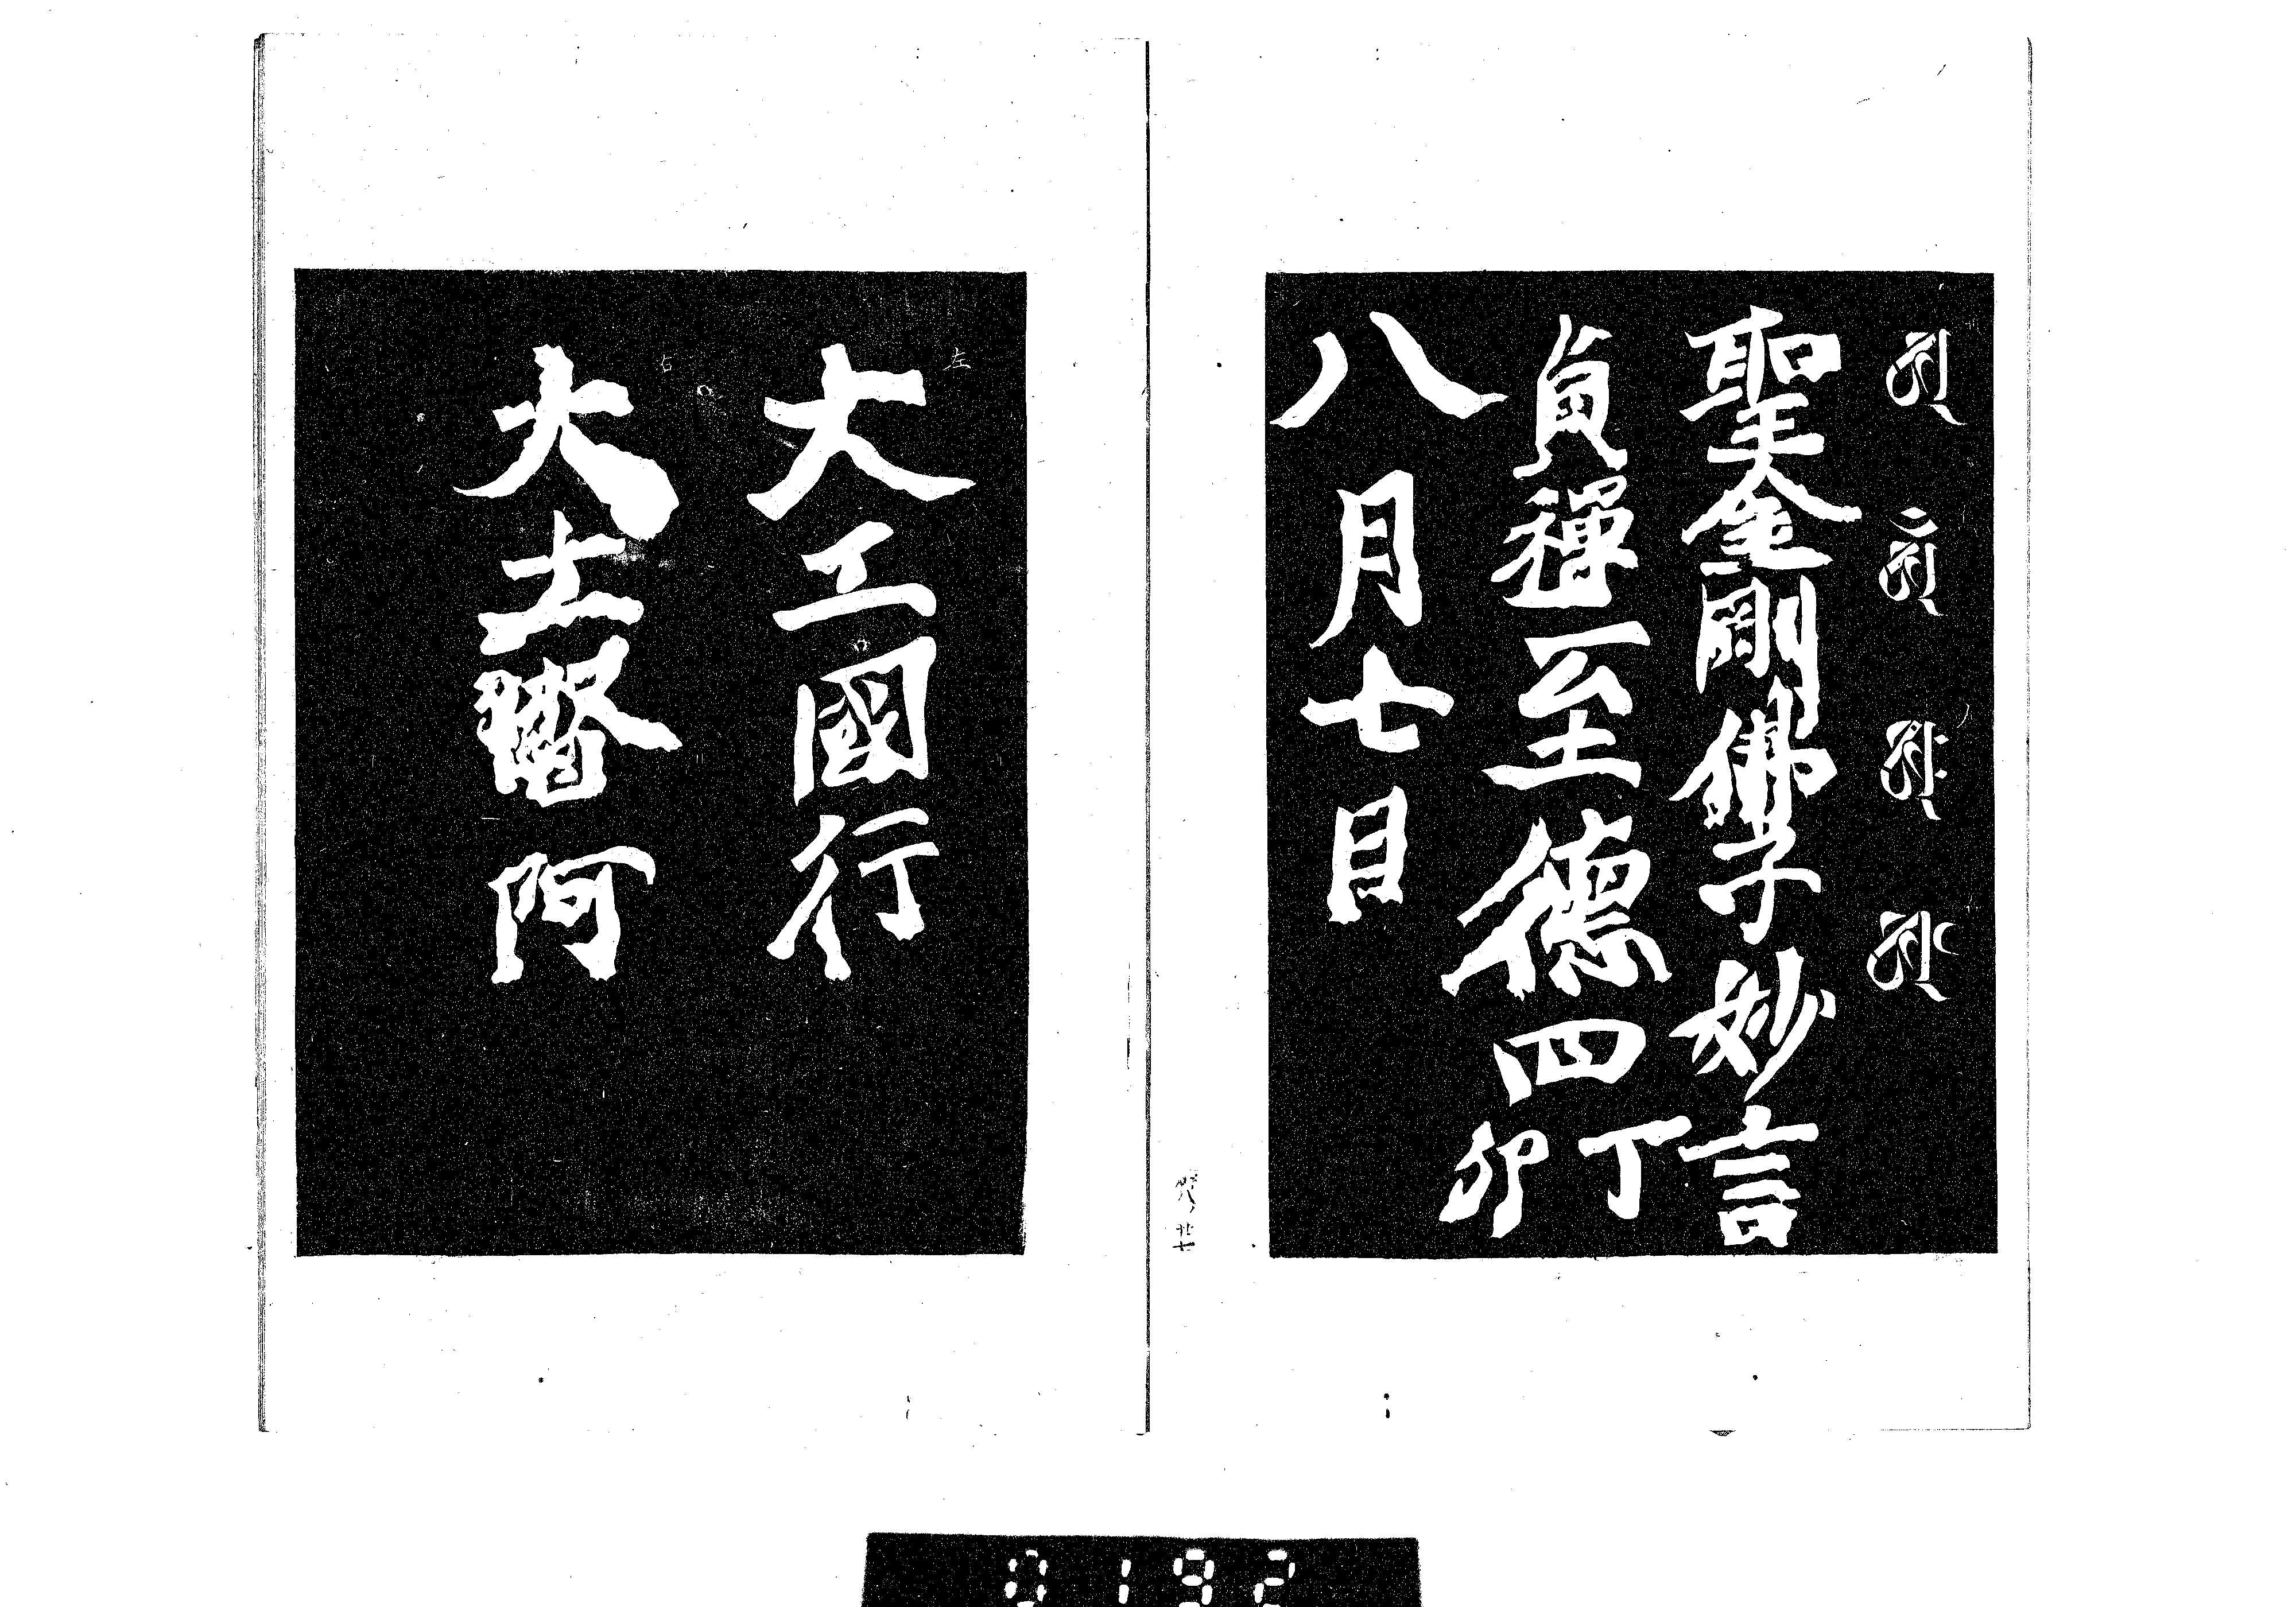 聖金剛佛子妙言
禪至德四丁卯
八月七日
左
大工國行
右
大土阿
0192